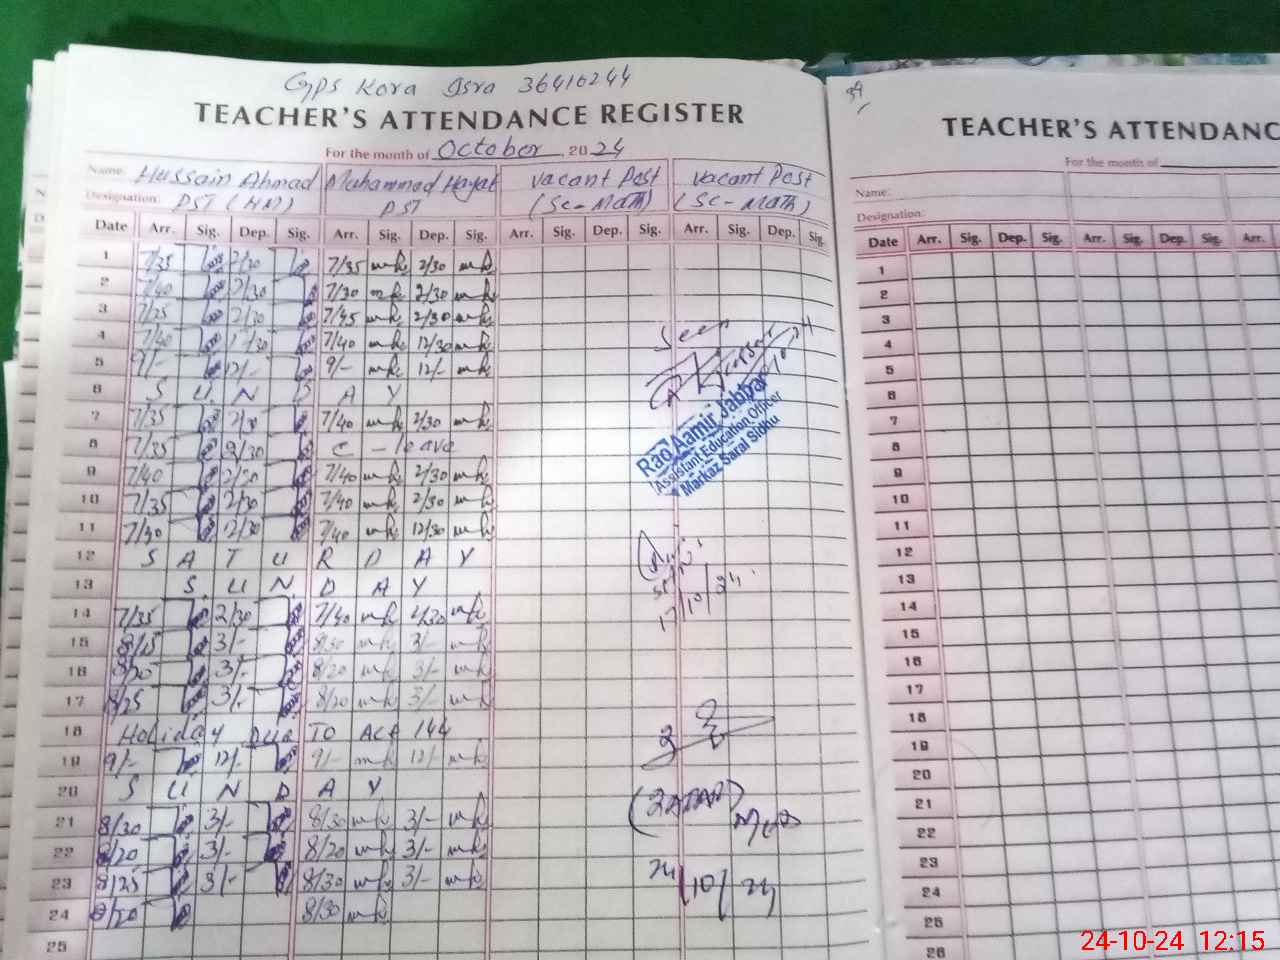 GPS Kora Isra 36410244
TEACHER'S ATTENDANCE REGISTER
For the month of October, 2024
Name: Hussain Ahmad Muhammad Hayat Vacant Post Vacant Post
Designation: PST (HM) PST (SC-Math) (SC-Math)
Date Arr. Sig. Dep. Sig. Arr. Sig. Dep. Sig. Arr. Sig. Dep. Sig. Arr. Sig. Dep. Sig.
1 7/35 2/30 7/35 mh 2/30 mh
2 7/40 2/30 7/30 mh 2/30 mh
3 7/25 2/30 7/45 mh 2/30 mh
4 7/40 7/40 mh 12/30 mh
5 9/- 12/- 9/- mh 12/- mh
6 S U N D A Y
7 7/35 2/30 7/40 mh 2/30 mh
8 7/35 2/30 C - leave
9 7/40 2/30 7/40 mh 2/30 mh
10 7/35 2/30 7/40 mh 2/30 mh
11 7/40 12/30 7/40 mh 12/30 mh
12 S A T U R D A Y
13 S U N D A Y
14 7/35 2/30 7/40 mh 2/30 mh
15 8/15 3/- 8/30 mh 3/- mh
16 8/20 3/- 8/20 mh 3/- mh
17 8/25 3/- 8/20 mh 3/- mh
18 Holiday Due To Act 144
19 9/- 12/- 9/- mh 12/- mh
20 S U N D A Y
21 8/30 3/- 8/30 mh 3/- mh
22 8/20 3/- 8/20 mh 3/- mh
23 8/25 3/- 8/30 mh 3/- mh
24 8/30 mh
25
Seen
Rao Aamir Jabbar
Assistant Education Officer
Markaz Saral Sidhu
17/10/24
24/10/24
TEACHER'S ATTENDANC
For the month of
Name:
Designation:
Date Arr. Sig. Dep. Sig. Arr. Sig. Dep. Sig. Arr.
1
2
3
4
5
6
7
8
9
10
11
12
13
14
15
16
17
18
19
20
21
22
23
24
25
26
24-10-24 12:15